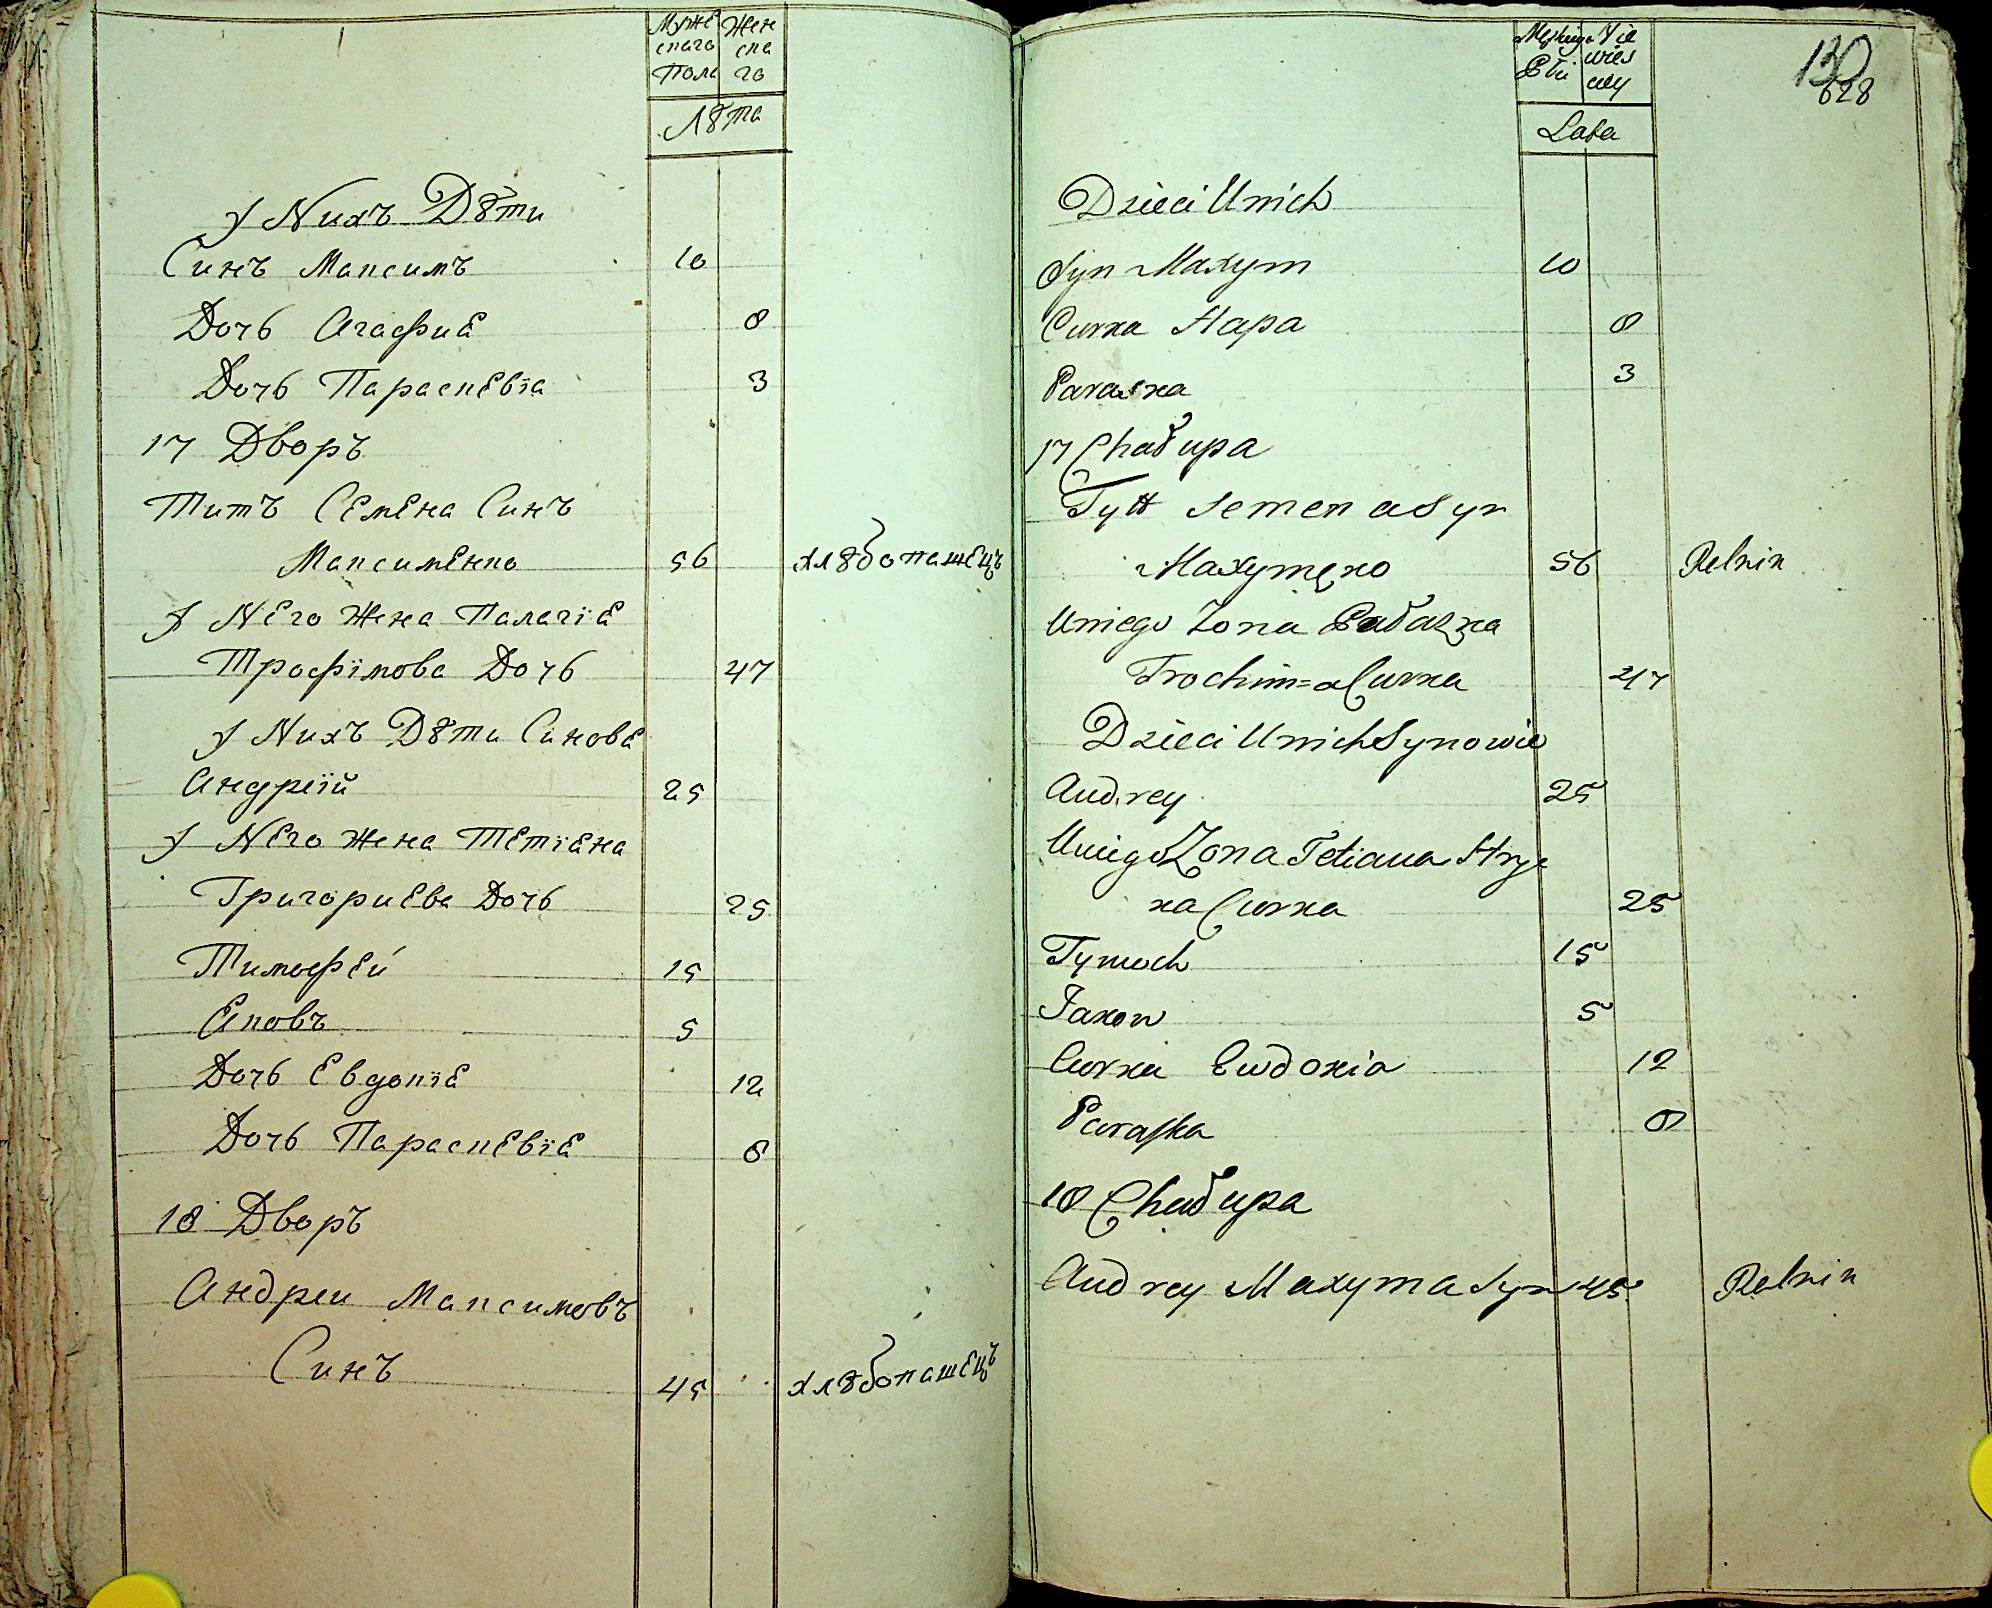 Муже Жен
скаго ска
Пола го
Лѣта
у Нихъ Дѣти
Синъ Максимъ 10
Дочь Агафиа 8
Дочь Параскевїа 3
17 Дворъ
Титъ Семена Синъ
Максименко 56 хлѣбопашецъ
у Него Жена Палагїа
Трофїмова Дочь 47
у Нихъ Дѣти Синове
Андреїй 25
у Него Жена Тетїана
Григориева Дочь 25
Тимофей 15
Яковъ 5
Дочь Евдокїа 12
Дочь Параскевїа 8
18 Дворъ
Андреи Максимовъ
Синъ 45 хлѣбопашецъ
130
628
Lata
Dzieci Unich
Syn Maxym 10
Curka Hapa 8
Paraska 3
17 Chałupa
Tytt Semena Syn
Maxymęko 56 Rolnik
Uniego Zona
Trochim=a Curka 47
Dzieci Unich Synowie
Andrey 25
Uniego Zona Tetiana Hry
ka Curka 25
Tymoch 15
Jakow 5
Curka Ewdokia 12
Paraska 8
18 Chałupa
Andrey Maxyma Syn 45 Rolnik